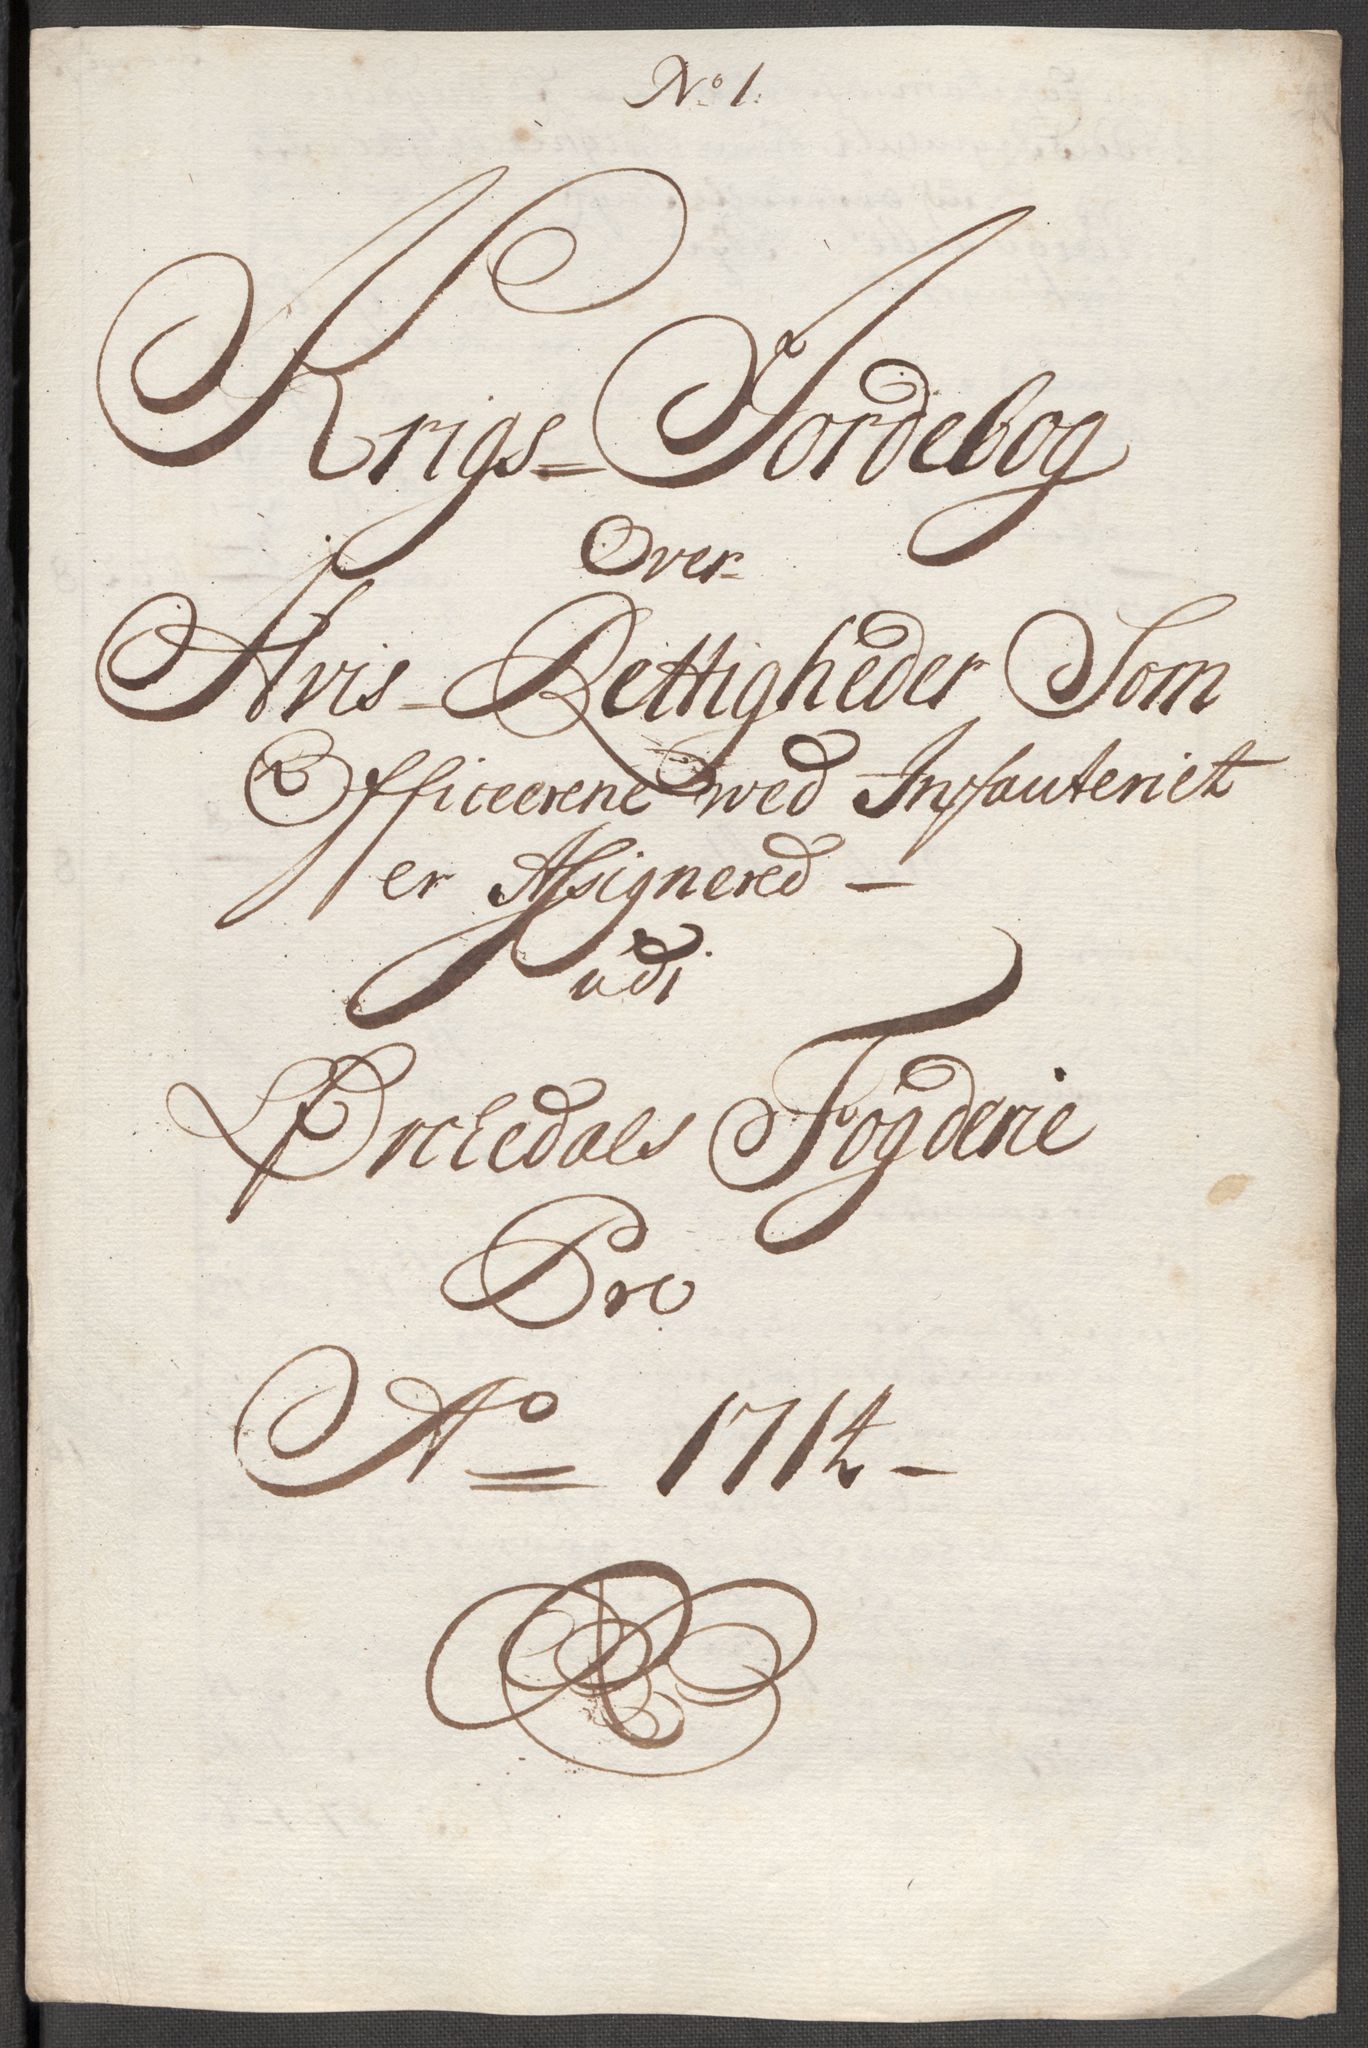 No 1.
Krigs= Jordebog
Over
Hvis- Rettigheder Som
Officeerene wed Infanteriet
er Assignered —
udi
Ørckedals Fogderie
Pro
Ao 1714 -